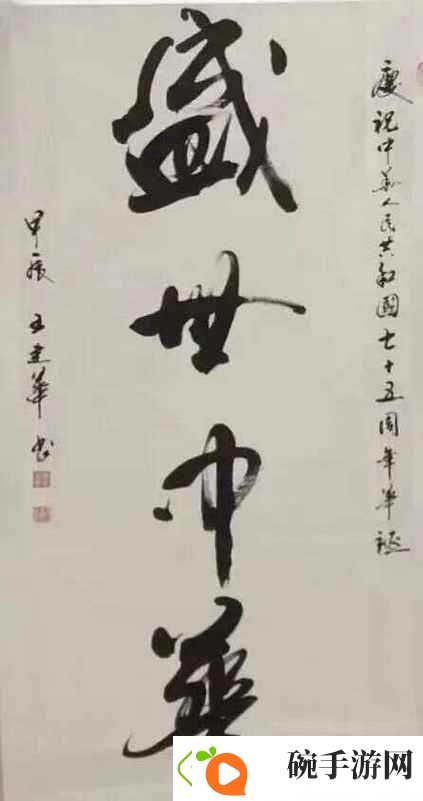 慶祝中華人民共和國七十五周年华诞
盛世中華
甲辰 王建華书
碗手游网